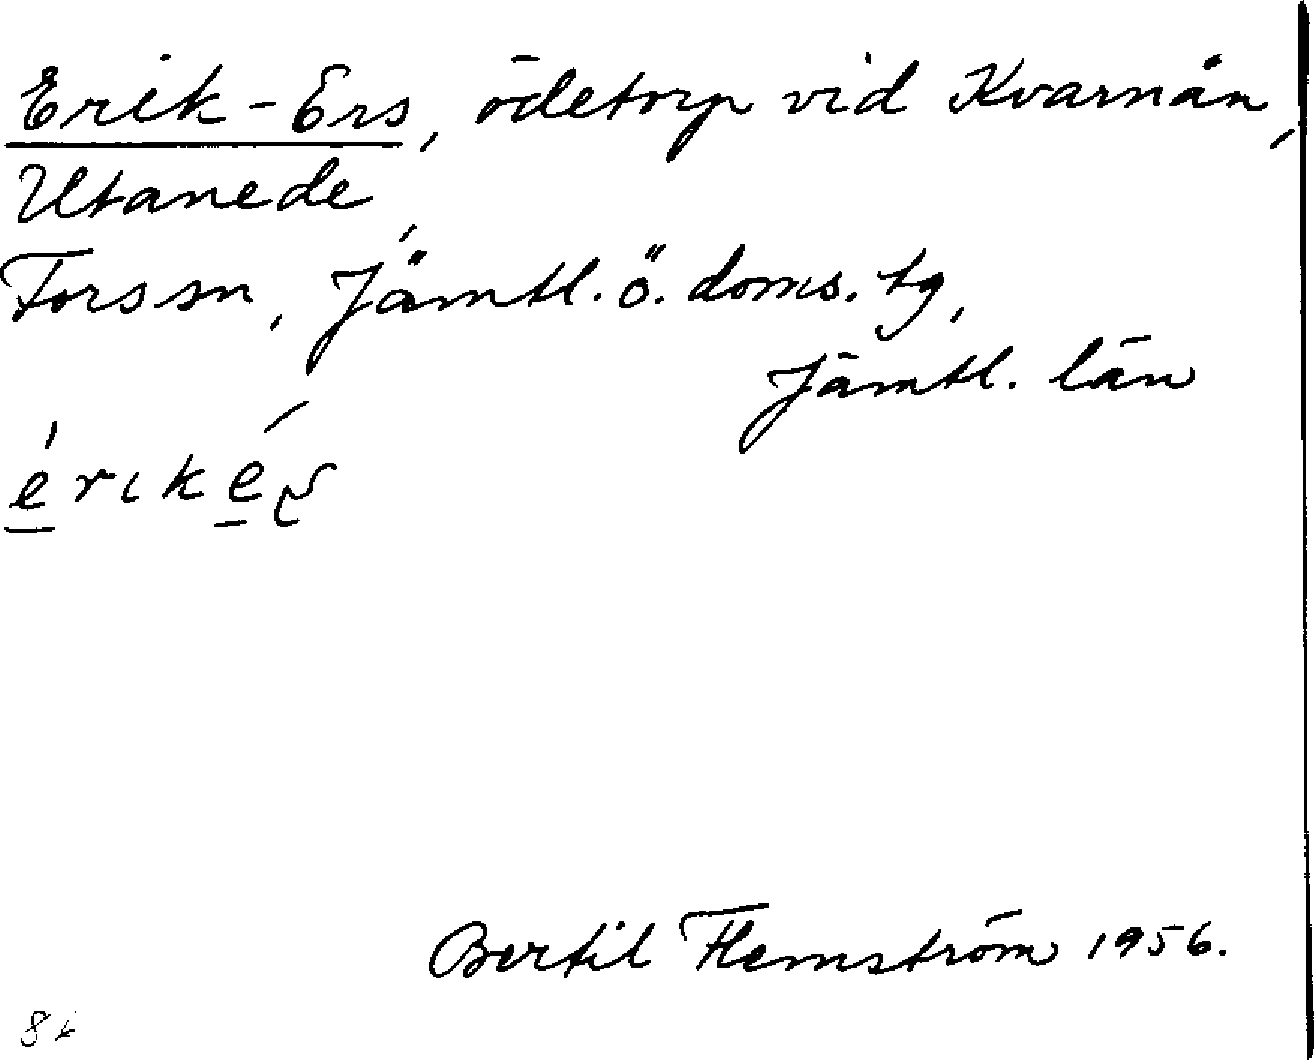 Erik-Ers, ödetorp vid Kvarnån,
Utanede,
Forssn, Jämtl. ö. doms. tg,
Jämtl. län
Bertil Flemström 1956.